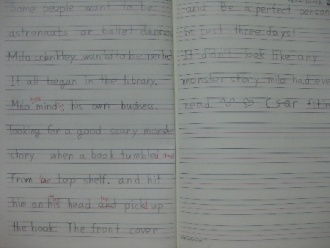 Some people want to be
astronauts or ballet dancers
Milo
wanted to be
It all began in the library.
Milo minding his own business.
looking for a good scary monster
story. when a book tumbled
from top shelf. and hit
him on his head and pick up
the book. The front cover
and Be a perfect person
in just three days!
It didn't look like any
monster story milo had ever
read.